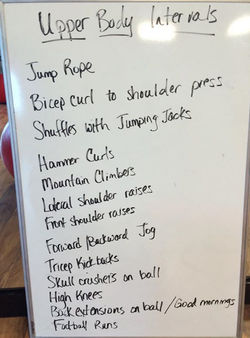 Upper Body Intervals
Jump Rope
Bicep curl to shoulder press
Shuffles with Jumping Jacks
Hammer Curls
Mountain Climbers
Lateral shoulder raises
Front shoulder raises
Forward/Backward Jog
Tricep Kickbacks
Skull crushers on ball
High Knees
Back extensions on ball / Good mornings
Football Runs